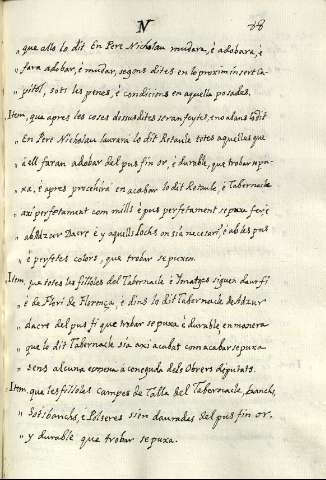 N 48
„ que allo lo dit En Pere Nicholau mudara, è adobara, è
„ fara adobar, è mudar, segons dites en lo proxim insert Ca-
„ pitol, sots les penes, è condicions en aquella posades.
Item, que apres les coses dessusdites seran feytes, e no abans lo dit
„ En Pere Nicholau laurarà lo dit Retaule totes aquelles que
„ à ell faran adobar del pus fin or, è durable, que trobar se pu-
„ xa, è apres procehirà en acabar lo dit Retaule, è Tabernacle
„ axi perfetament com mills è pus perfetament se puxa fer, è
„ ab Adzur Dacre è y aquells lochs on sia necesari, è ab les pus
„ è perfetes colors, que trobar se puxen.
Item, que totes les filloles del Tabernacle è Ymatges siguen daur fi
„ è de Flori de Florença, è dins lo dit Tabernacle de Adzur
„ dacre del pus fi que trobar se puxa è durable, en manera
„ que lo dit Tabernacle sia axi acabat com acabar se puxa
„ sens alcuna esmena à coneguda dels Obrers deputats.
Item, que les filloles campes de Talla del Tabernacle, banchs,
„ Sotsbanchs, è Polseres sien daurades del pus fin or,
„ y durable que trobar se puxa.